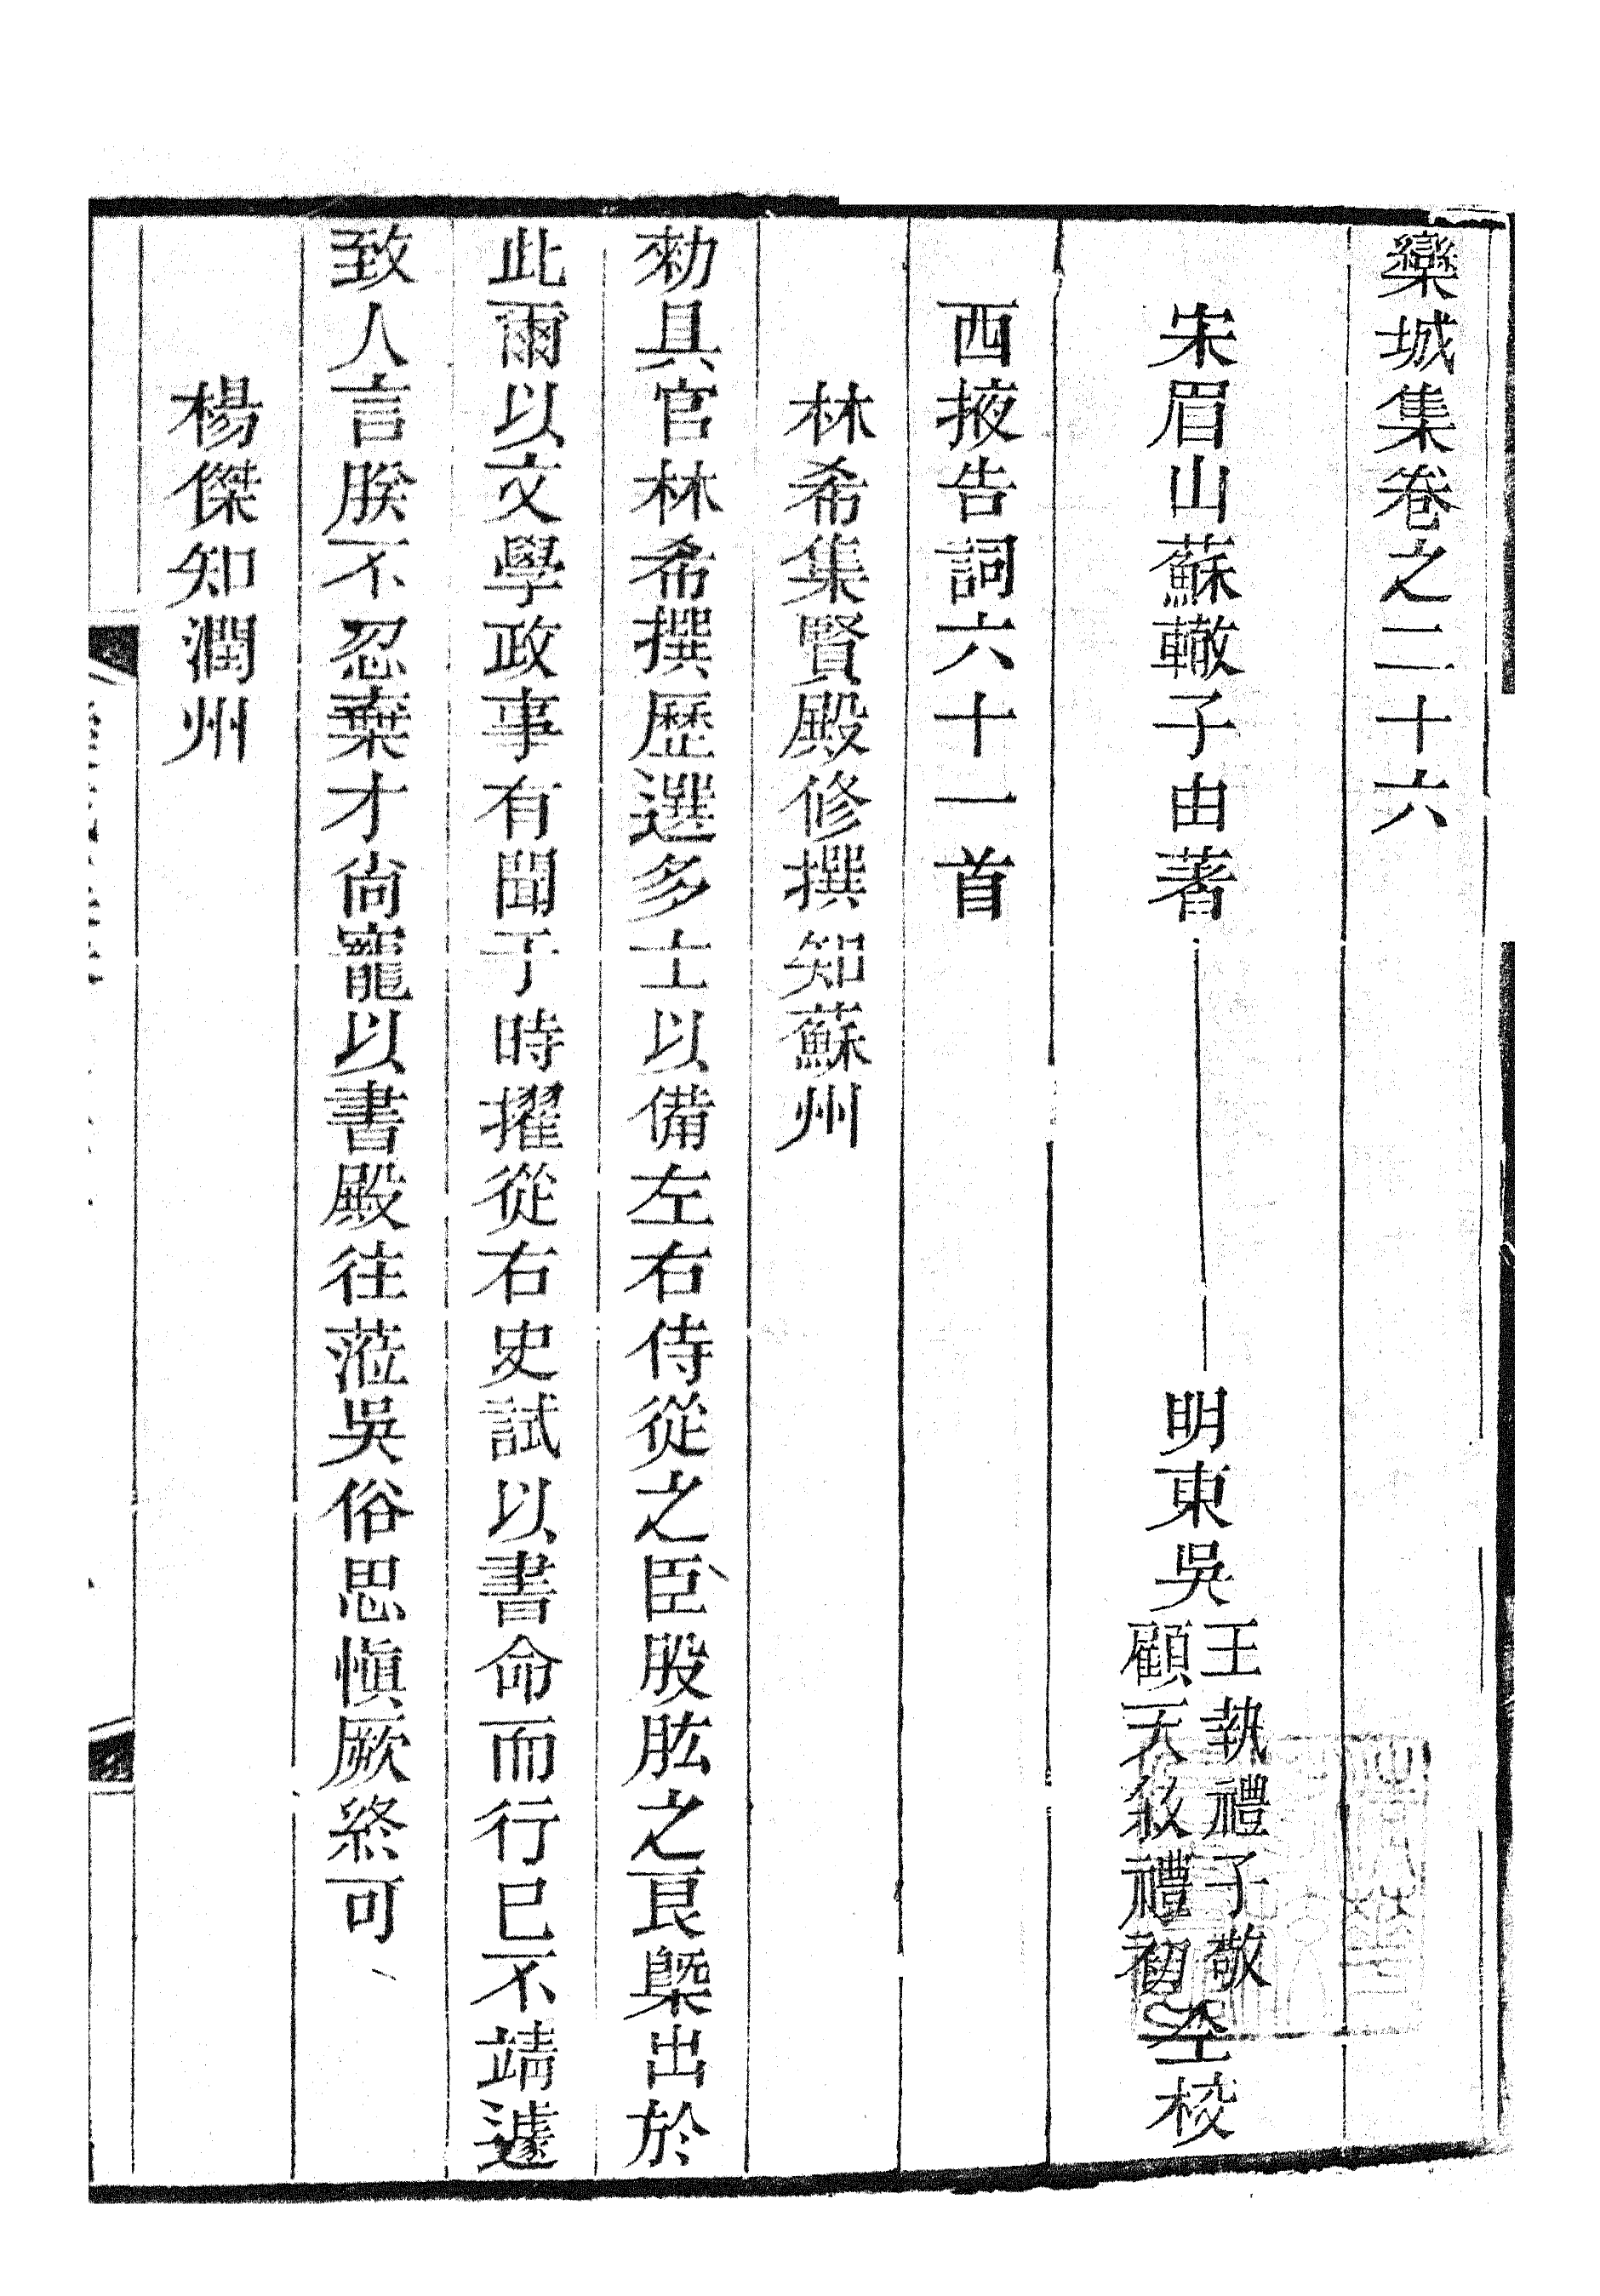 欒城集卷之二十六
宋眉山蘇轍子由著
明東吳王執禮子敬顧天叙禮初仝校
西掖告詞六十一首
林希集賢殿修撰知蘇州
勑具官林希撰歷選多士以備左右侍從之臣股肱之良槩出於
此爾以文學政事有聞于時擢從右史試以書命而行已不靖遽
致人言朕不忍棄才尙寵以書殿往蒞吳俗思愼厥終可
楊傑知潤州